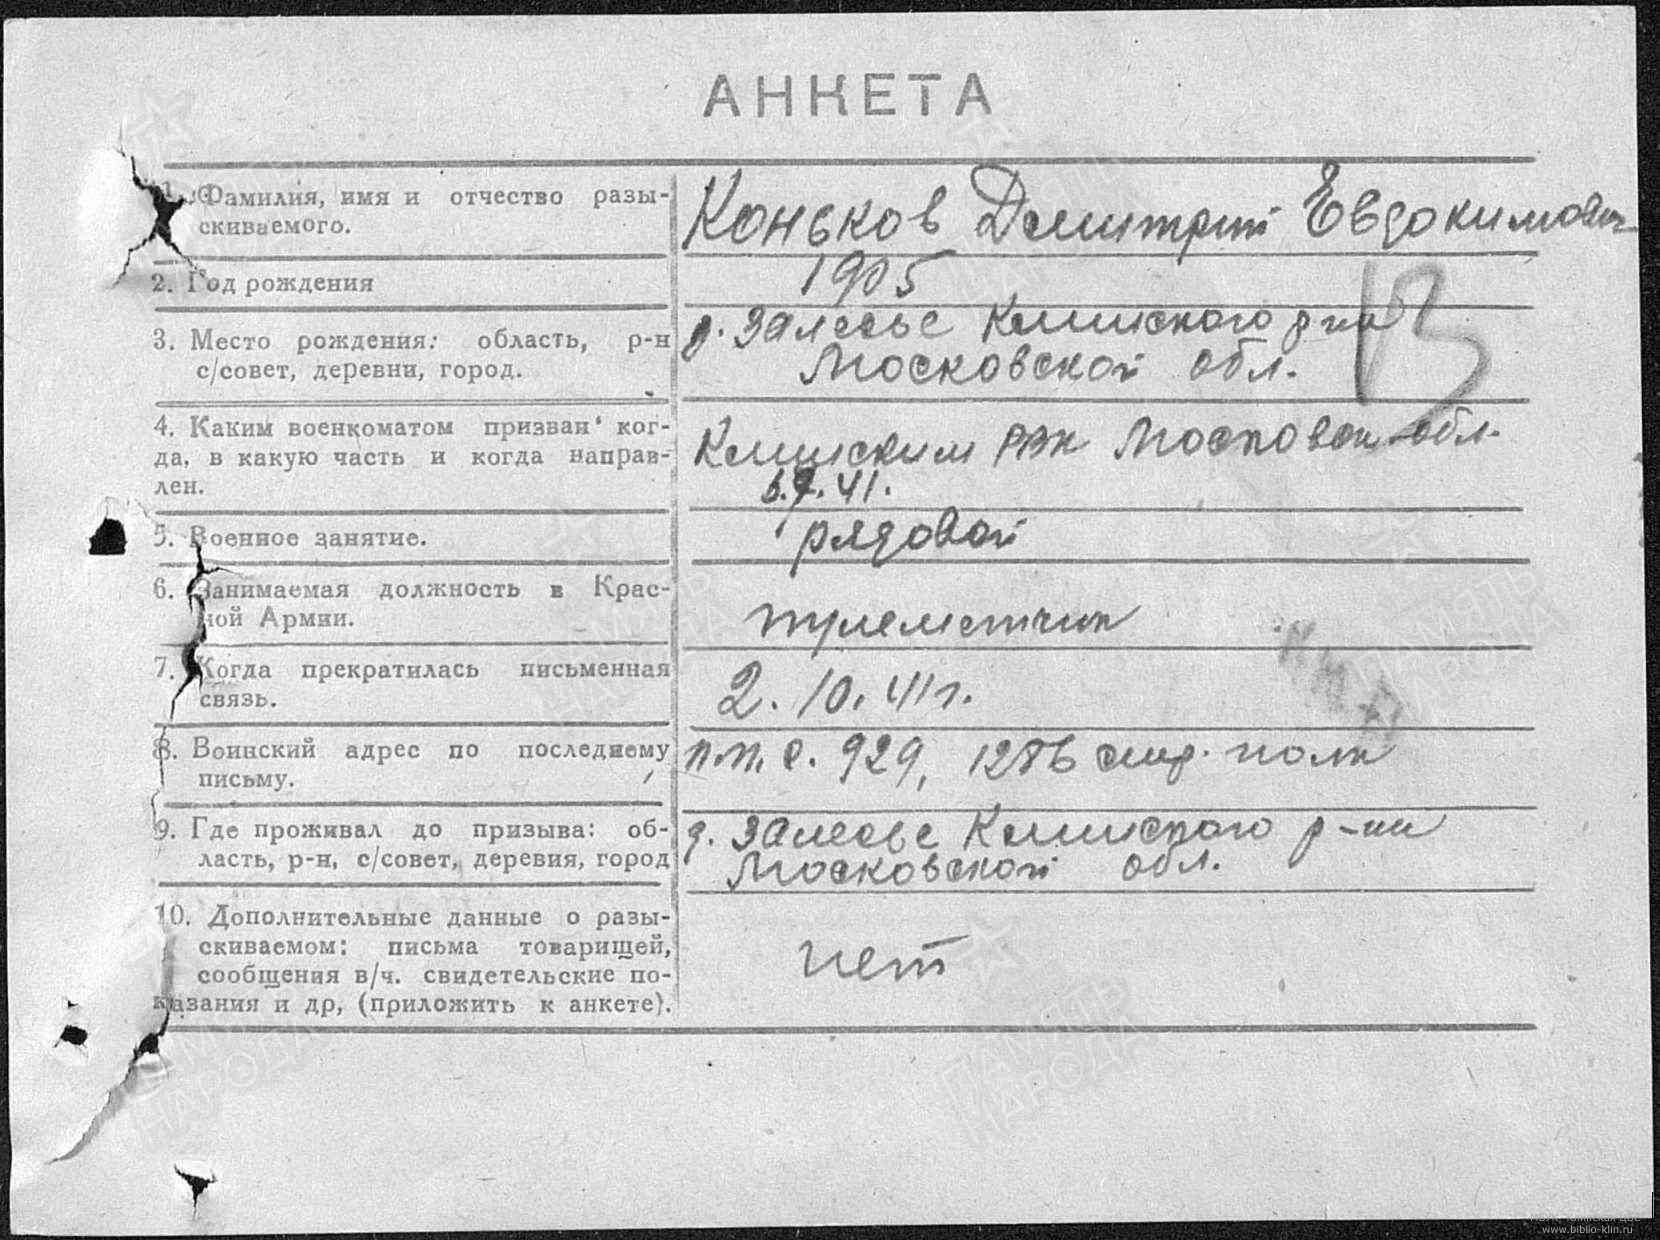 АНКЕТА
1. Фамилия, имя и отчество разы-
скиваемого.
Коньков Дмитрий Евдокимович
2. Год рождения
1905
3. Место рождения: область, р-н
с/совет, деревни, город.
д. Залесье Клинского р-на
Московской обл.
13
4. Каким военкоматом призван ког-
да, в какую часть и когда направ-
лен.
Клинским РВК Московск. обл.
41.
5. Военное занятие.
рядовой
6. Занимаемая должность в Крас-
ной Армии.
пулеметчик
7. Когда прекратилась письменная
связь.
2. 10. 41 г.
8. Воинский адрес по последнему
письму.
п.п.с. 929, стр. полк
9. Где проживал до призыва: об-
ласть, р-н, с/совет, деревия, город
д. Залесье Клинского р-на
Московской обл.
10. Дополнительные данные о разы-
скиваемом: письма товарищей,
сообщения в/ч. свидетельские по-
казания и др, (приложить к анкете).
нет
ПАМЯТЬ
НАРОДА
www.biblio-klin.ru